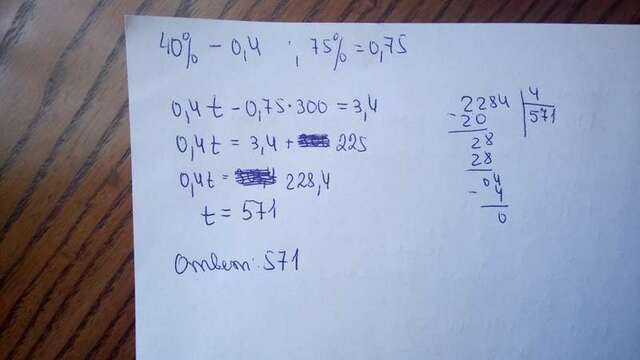 40% - 0,4 ; 75% = 0,75
0,4 t - 0,75 · 300 = 3,4
0,4 t = 3,4 + 225
0,4 t = 228,4
t = 571
Ответ: 571
2284 4
- 20 571
28
28
04
- 4
0